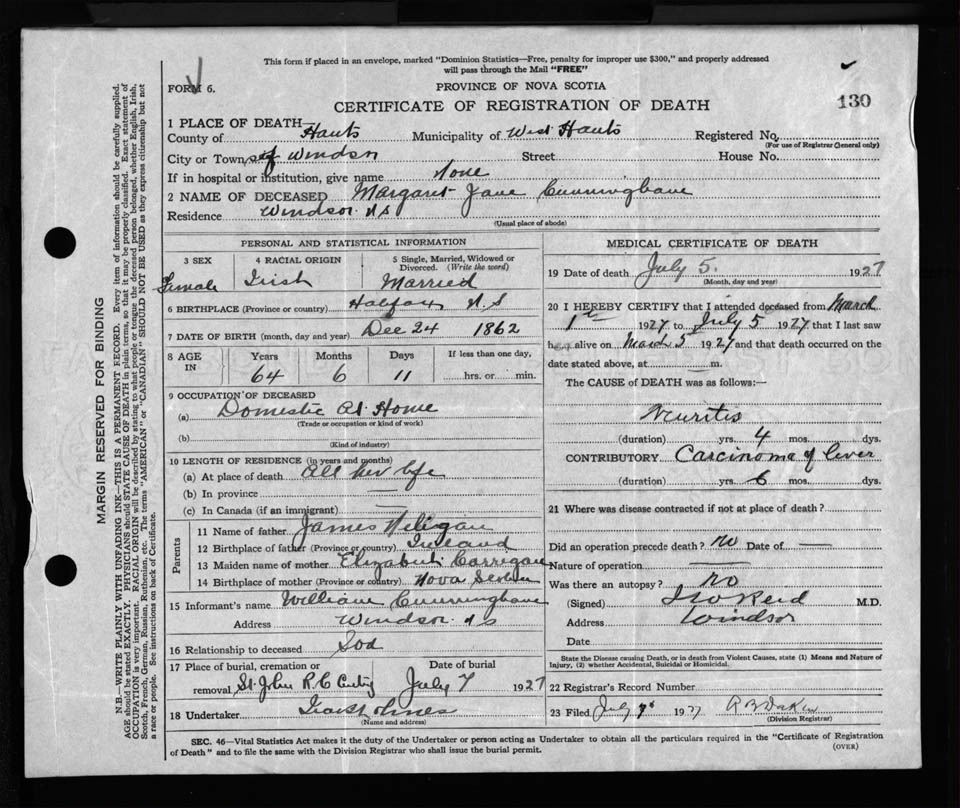 This form if placed in an envelope, marked "Dominion Statistics—Free, penalty for improper use $300," and properly addressed
will pass through the Mail "FREE"
FORM 6.
PROVINCE OF NOVA SCOTIA
CERTIFICATE OF REGISTRATION OF DEATH
130
1 PLACE OF DEATH
County of Hants Municipality of West Hants Registered No.
(For use of Registrar General only)
City or Town of Windsor Street House No.
If in hospital or institution, give name None
2 NAME OF DECEASED Margaret Jane Cunninghane
Residence Windsor NS
(Usual place of abode)
PERSONAL AND STATISTICAL INFORMATION
3 SEX 4 RACIAL ORIGIN 5 Single, Married, Widowed or
Divorced. (Write the word)
Female Irish Married
6 BIRTHPLACE (Province or country) Halifax N.S
7 DATE OF BIRTH (month, day and year) Dec 24 1862
8 AGE IN Years Months Days If less than one day,
64 6 11 hrs. or min.
9 OCCUPATION OF DECEASED
(a) Domestic At Home
(Trade or occupation or kind of work)
(b)
(Kind of industry)
10 LENGTH OF RESIDENCE (in years and months)
(a) At place of death All her life
(b) In province —
(c) In Canada (if an immigrant) —
Parents
11 Name of father James
12 Birthplace of father (Province or country) Ireland
13 Maiden name of mother Elizabeth Corrigan
14 Birthplace of mother (Province or country) Nova Scotia
15 Informant's name William Cunninghane
Address Windsor NS
16 Relationship to deceased
17 Place of burial, cremation or Date of burial
removal St. John R C July 7 1927
18 Undertaker
(Name and address)
MEDICAL CERTIFICATE OF DEATH
19 Date of death July 5. 1927
(Month, day and year)
20 I HEREBY CERTIFY that I attended deceased from March
1st 1927 to July 5 1927 that I last saw
her alive on 5 1927 and that death occurred on the
date stated above, at — m.
The CAUSE of DEATH was as follows:—
Neuritis
(duration) yrs. 4 mos. dys.
CONTRIBUTORY Carcinoma of liver
(duration) yrs. 6 mos. dys.
21 Where was disease contracted if not at place of death?
Did an operation precede death? No Date of —
Nature of operation —
Was there an autopsy? No
(Signed) Reid M.D.
Address Windsor
Date
State the Disease causing Death, or in death from Violent Causes, state (1) Means and Nature of
Injury, (2) whether Accidental, Suicidal or Homicidal.
22 Registrar's Record Number
23 Filed July 7 1927
(Division Registrar)
SEC. 46—Vital Statistics Act makes it the duty of the Undertaker or person acting as Undertaker to obtain all the particulars required in the "Certificate of Registration
of Death" and to file the same with the Division Registrar who shall issue the burial permit.
(OVER)
MARGIN RESERVED FOR BINDING
N.B.—WRITE PLAINLY WITH UNFADING INK—THIS IS A PERMANENT RECORD. Every item of information should be carefully supplied.
AGE should be stated EXACTLY. PHYSICIANS should STATE CAUSE OF DEATH in plain terms, so that it may be properly classified. Exact statement of
OCCUPATION is very important. RACIAL ORIGIN will be described by stating to what people or tongue the deceased person belonged, whether English, Irish,
Scotch, French, German, Russian, Ruthenian, etc. The terms "AMERICAN" or "CANADIAN" SHOULD NOT BE USED as they express citizenship but not
a race or people. See instructions on back of Certificate.